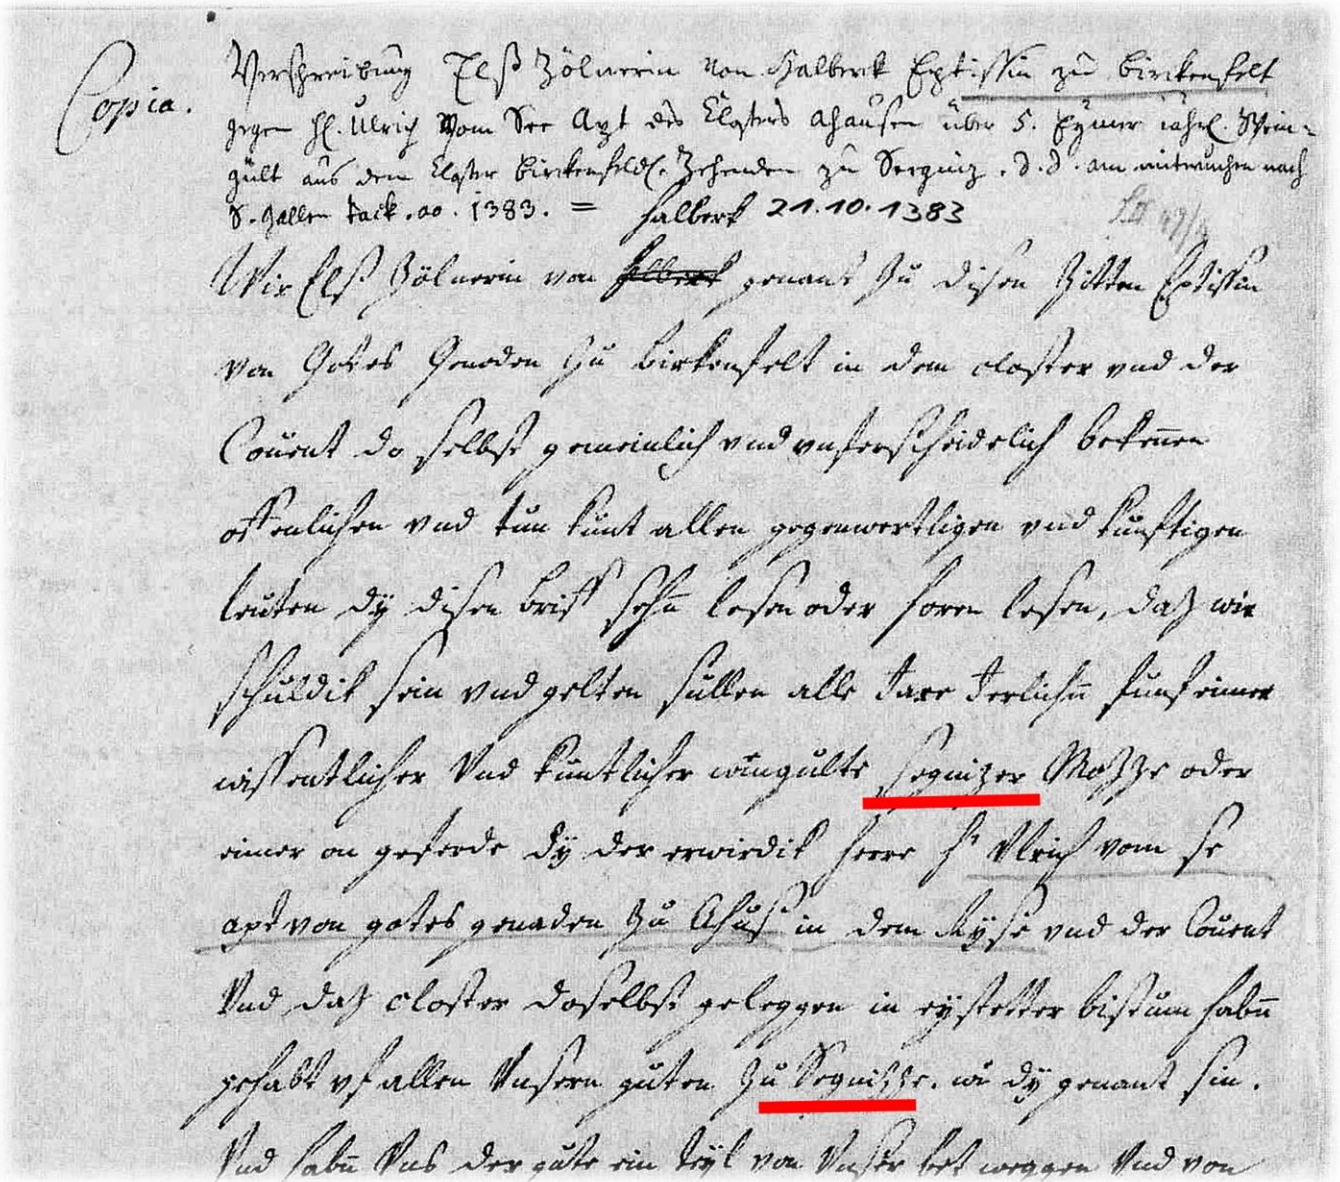 Copia.
Verschreibung Elß Zölnerin von Halberck Eptissin zu Birckenfelt
gegen H. Ulrich Vom See Apt des Closters Ahausen über 5. Eymer jährl. Wein-
gült aus dem Closter Birckenfeld. Zehenden zu Segniz. d. d. am mitwuchen nach
S. Gallen tack. ao. 1383. = Halberk 21.10.1383
Wir Elß Zölnerin von Halberk genant zu disen Zitten Eptissin
von Gottes Genoden zu Birkenfelt in dem closter vnd der
Couent do selbst gemeinlich vnd vnsterscheidelich bekennen
offenlichen vnd tun kunt allen gegenwertligen vnd kunftigen
leuten dy disen briff sehn lesen oder horen lesen, daz wir
schuldik sein vnd gelten sullen alle Jare Jerlichn funf eimer
wissentlicher Vnd kuntlicher wingulte segnizer Mazze oder
eimer on geferde dy der erwirdik herre h Vlrich vom se
apt von gotes genaden zu Ahus in dem Ryse vnd der Couent
Vnd daz closter doselbst geleggen in eystetter bistum habn
gehabt vf allen Vnsern guten zu Segnizze. wi dy genant sin.
Vnd habn Vns der gute ein teyl von Vnser bet weggen Vnd von